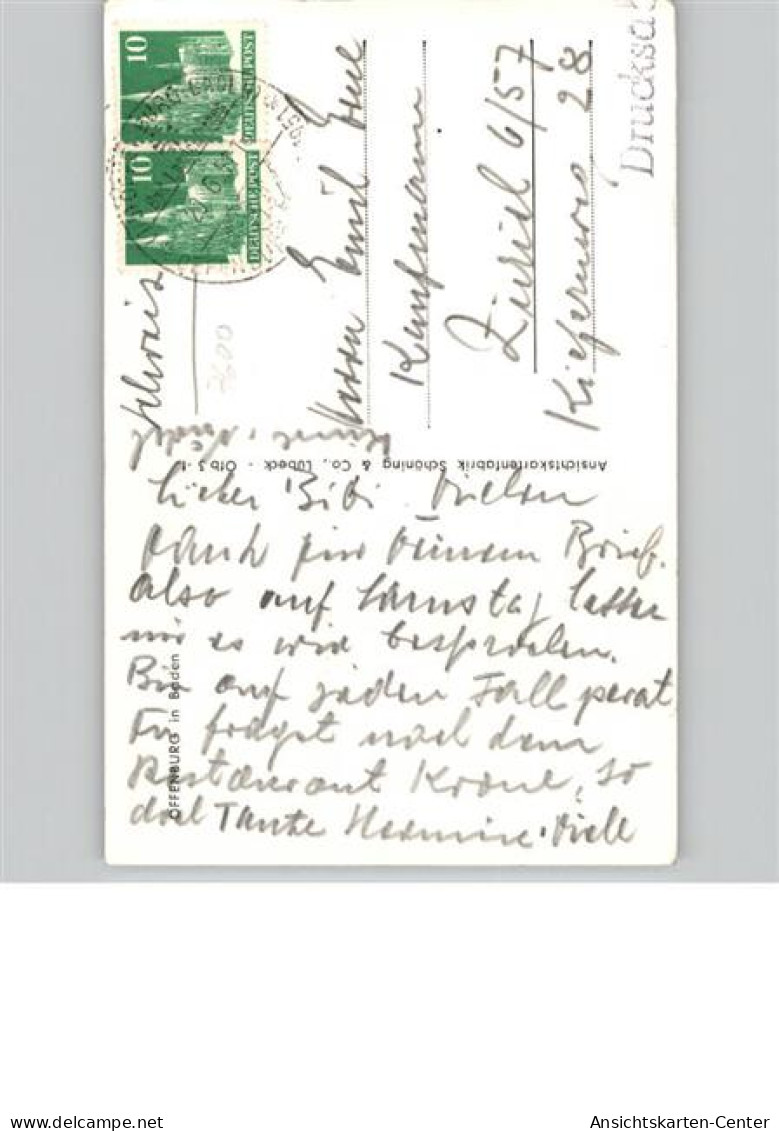 10
DEUTSCHE POST
10
DEUTSCHE POST
Drucksac
Herrn Emil
Kaufmann
Zürich 6/57
Kieferweg 28
Schweiz
3600
Ansichtskartenfabrik Schöning & Co., Lübeck - Ofb S 1
OFFENBURG in Baden
Lieber Bibi Vielen
Dank für Deinen Brief.
also auf Samstag
wir es wird besprochen.
Bin auf jeden Fall parat
Du frägst nach dem
Restaurant Krone, so
doch Tante Hermine. Viele
delcampe.net
Ansichtskarten-Center